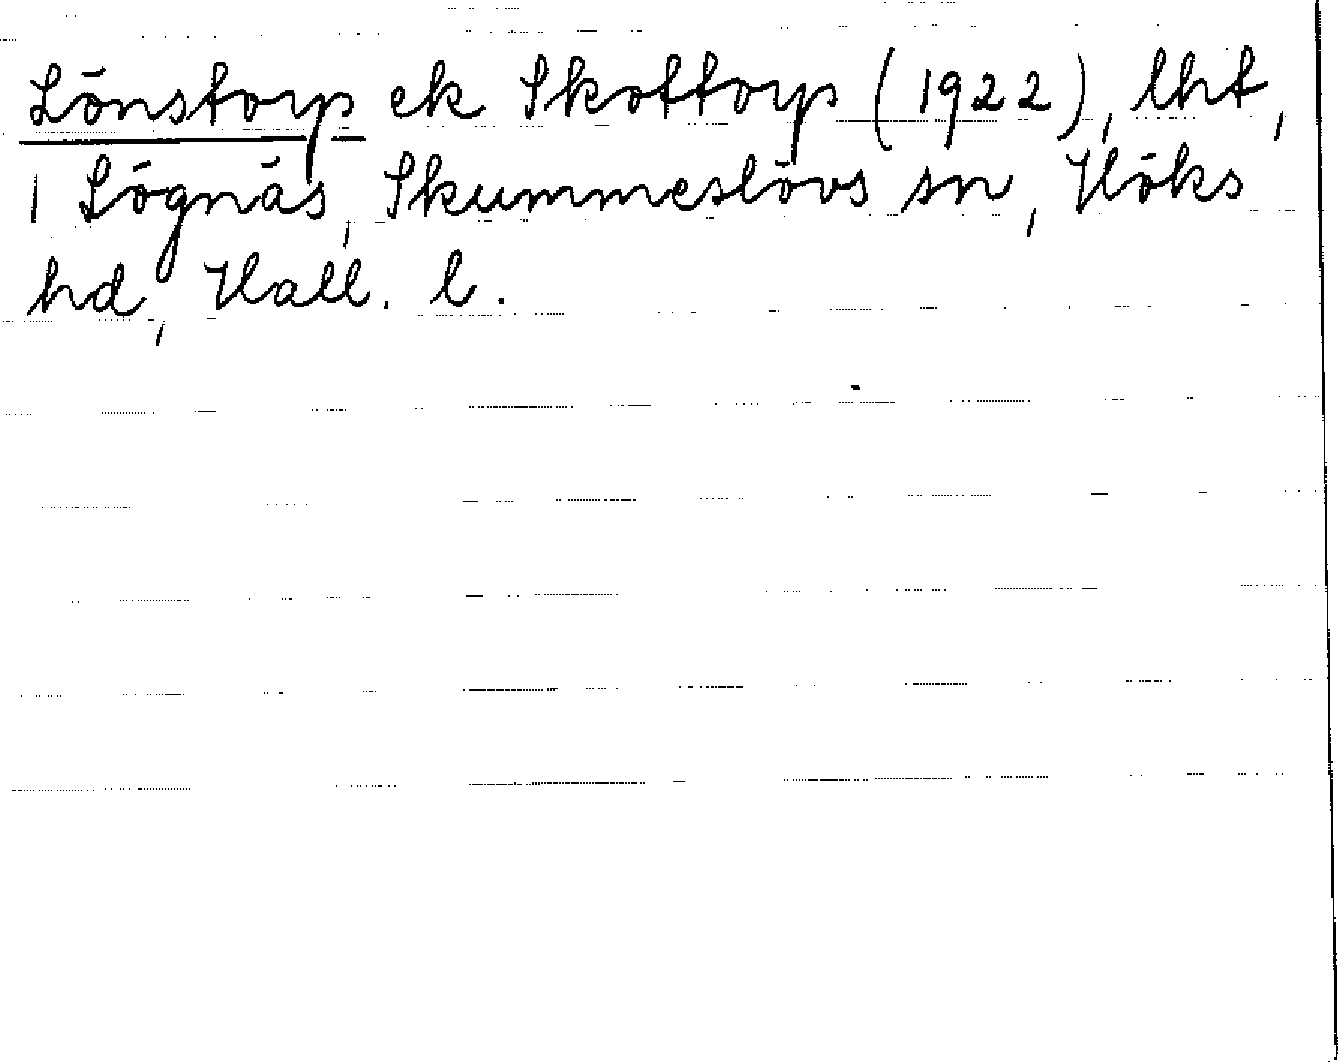 Lönstorp ek Skottorp (1922), lht,
1 Lögnäs, Skummeslövs sn, Höks
hd, Hall. l.